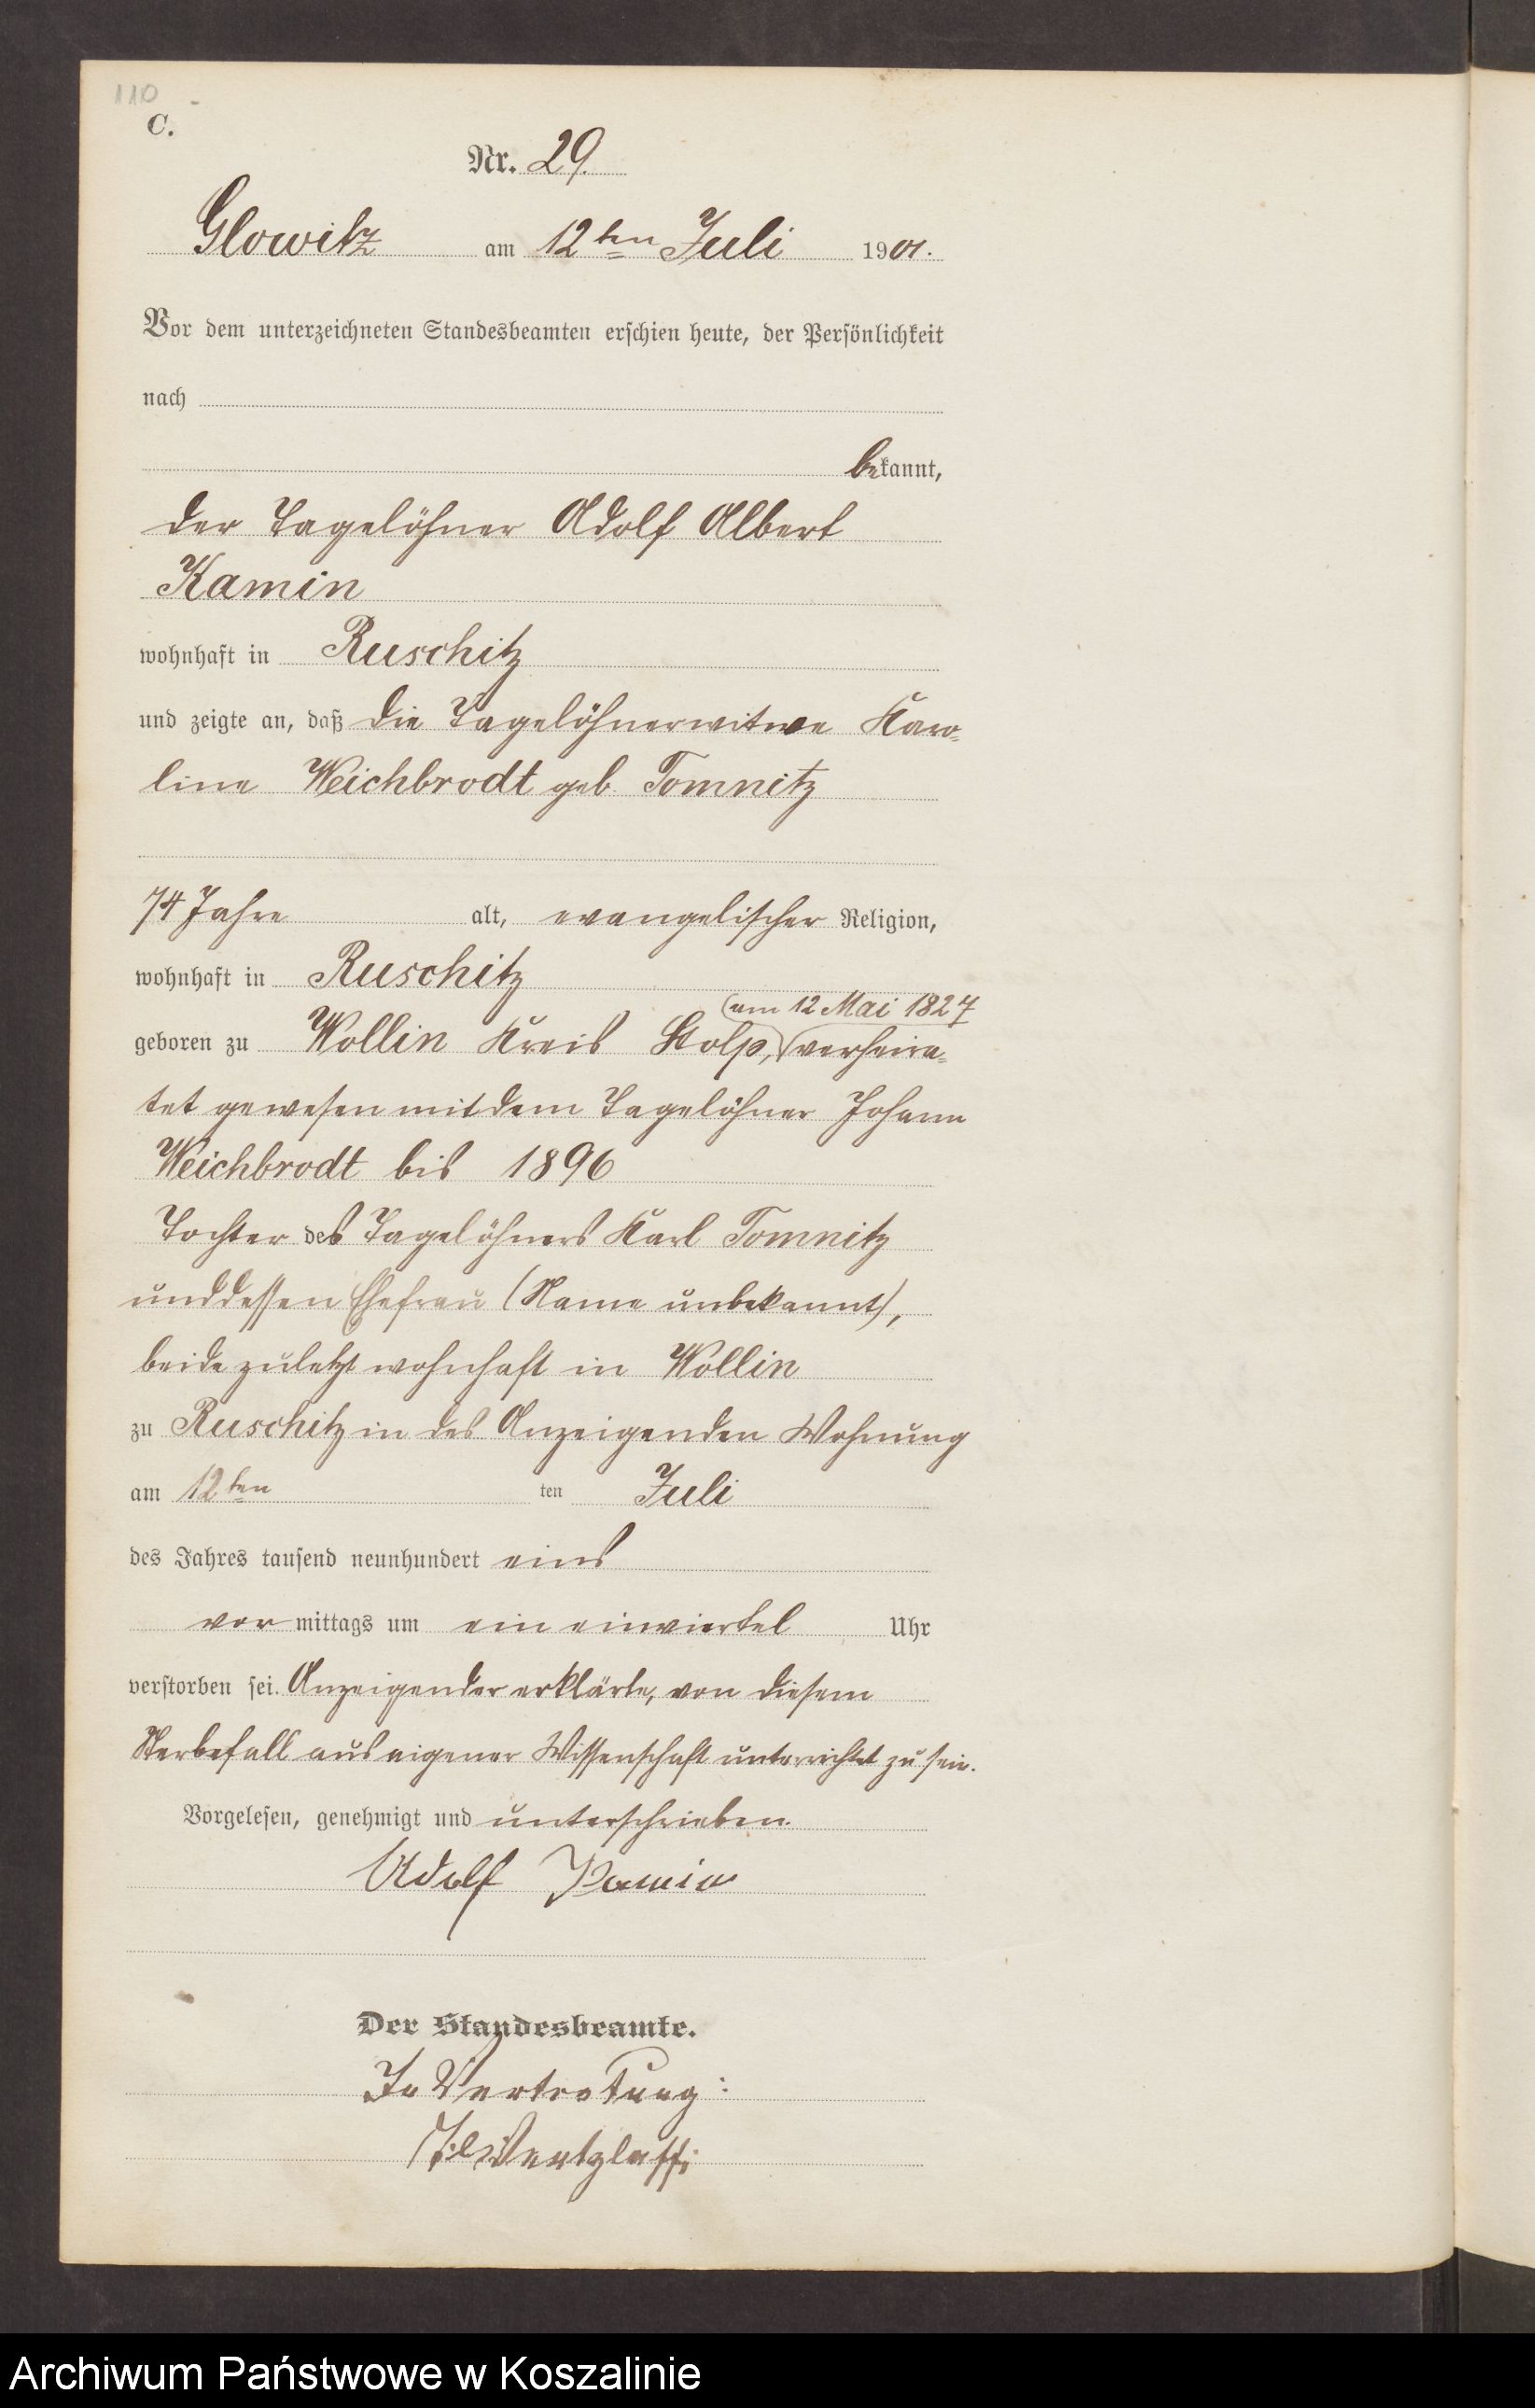 110
C.
Nr. 29.
Glowitz am 12ten Juli 1901.
Vor dem unterzeichneten Standesbeamten erschien heute, der Persönlichkeit
nach
bekannt,
der Tagelöhner Adolf Albert
Kamin
wohnhaft in Ruschitz
und zeigte an, daß die Tagelöhnerwitwe Karo-
line Weichbrodt geb. Tomnitz
74 Jahre alt, evangelischer Religion,
wohnhaft in Ruschitz
am 12 Mai 1827
geboren zu Wollin Kreis Stolp, verheira-
tet gewesen mit dem Tagelöhner Johann
Weichbrodt bis 1896
Tochter des Tagelöhners Karl Tomnitz
und dessen Ehefrau (Name unbekannt),
beide zuletzt wohnhaft in Wollin
zu Ruschitz in des Anzeigenden Wohnung
am 12ten ten Juli
des Jahres tausend neunhundert eins
vor mittags um ein einviertel Uhr
verstorben sei. Anzeigender erklärte, von diesem
Sterbefall aus eigener Wissenschaft unterrichtet zu sein.
Vorgelesen, genehmigt und unterschrieben.
Adolf Kamin
Der Standesbeamte.
In Vertretung:
Archiwum Państwowe w Koszalinie